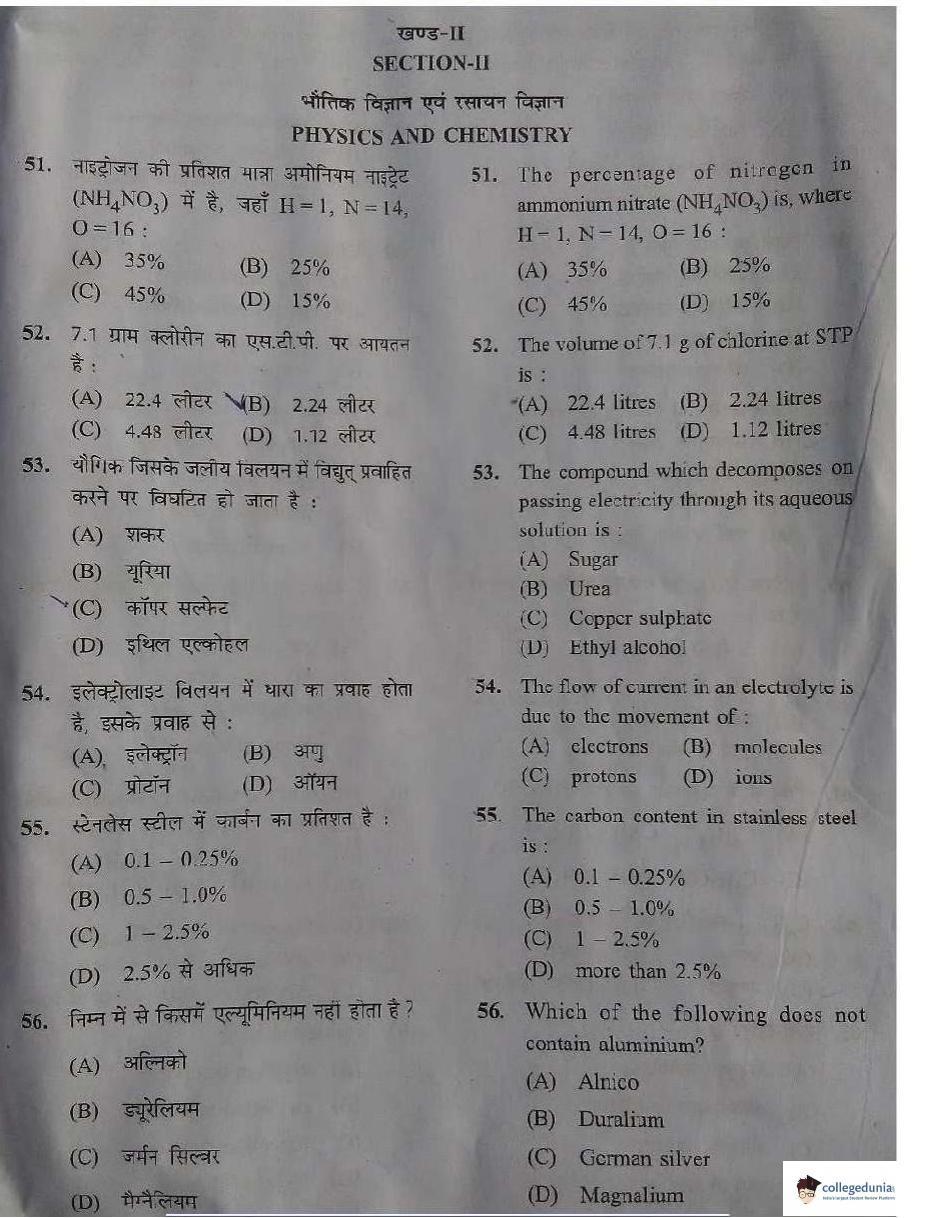 खण्ड-II
SECTION-II
भौतिक विज्ञान एवं रसायन विज्ञान
PHYSICS AND CHEMISTRY
51. नाइट्रोजन की प्रतिशत मात्रा अमोनियम नाइट्रेट
(NH₄NO₃) में है, जहाँ H = 1, N = 14,
O = 16 :
(A) 35% (B) 25%
(C) 45% (D) 15%
52. 7.1 ग्राम क्लोरीन का एस.टी.पी. पर आयतन
है :
(A) 22.4 लीटर (B) 2.24 लीटर
(C) 4.48 लीटर (D) 1.12 लीटर
53. यौगिक जिसके जलीय विलयन में विद्युत् प्रवाहित
करने पर विघटित हो जाता है :
(A) शकर
(B) यूरिया
(C) कॉपर सल्फेट
(D) इथिल एल्कोहल
54. इलेक्ट्रोलाइट विलयन में धारा का प्रवाह होता
है, इसके प्रवाह से :
(A) इलेक्ट्रॉन (B) अणु
(C) प्रोटॉन (D) ऑयन
55. स्टेनलेस स्टील में कार्बन का प्रतिशत है :
(A) 0.1 – 0.25%
(B) 0.5 – 1.0%
(C) 1 – 2.5%
(D) 2.5% से अधिक
56. निम्न में से किसमें एल्यूमिनियम नहीं होता है ?
(A) अल्निको
(B) ड्यूरेलियम
(C) जर्मन सिल्वर
(D) मैग्नैलियम
51. The percentage of nitrogen in
ammonium nitrate (NH₄NO₃) is, where
H = 1, N = 14, O = 16 :
(A) 35% (B) 25%
(C) 45% (D) 15%
52. The volume of 7.1 g of chlorine at STP
is :
(A) 22.4 litres (B) 2.24 litres
(C) 4.48 litres (D) 1.12 litres
53. The compound which decomposes on
passing electricity through its aqueous
solution is :
(A) Sugar
(B) Urea
(C) Copper sulphate
(D) Ethyl alcohol
54. The flow of current in an electrolyte is
due to the movement of :
(A) electrons (B) molecules
(C) protons (D) ions
55. The carbon content in stainless steel
is :
(A) 0.1 – 0.25%
(B) 0.5 – 1.0%
(C) 1 – 2.5%
(D) more than 2.5%
56. Which of the following does not
contain aluminium?
(A) Alnico
(B) Duralium
(C) German silver
(D) Magnalium
collegedunia
India's largest Student Review Platform